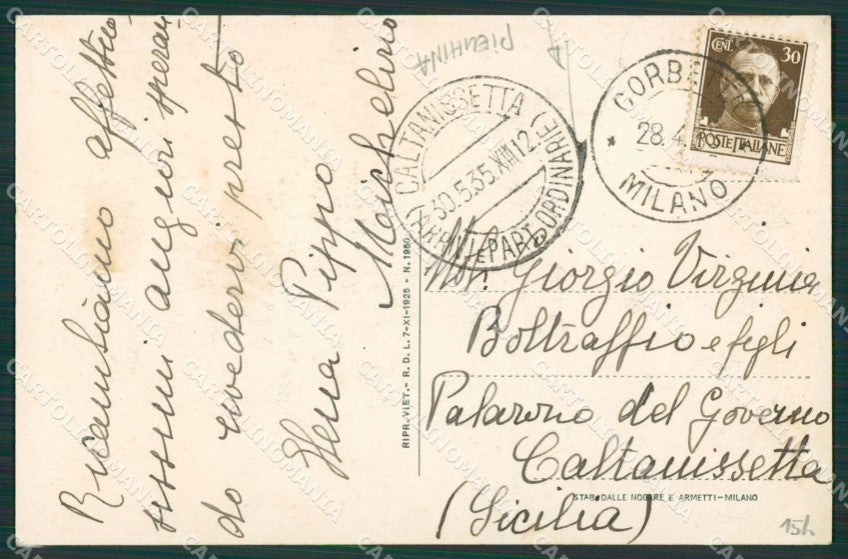 Ricambiamo affettuo
sissimi auguri speran
do rivedervi presto
Pippo
Michelino
RIPR. VIET. - R. D. L. 7-XI-1925 - N. 1950
PIEGHINA
CALTANISSETTA
30.5.35.XIII 12
(ARRIVI E PART. ORDINARIE)
CORBETTA
28.4
MILANO
CENT. 30
POSTE ITALIANE
Giorgio Virginia
Boltraffio e figli
Palazzo del Governo
Caltanissetta
(Sicilia)
STAB. DALLE NOGARE E ARMETTI - MILANO
CARTOLINOMANIA